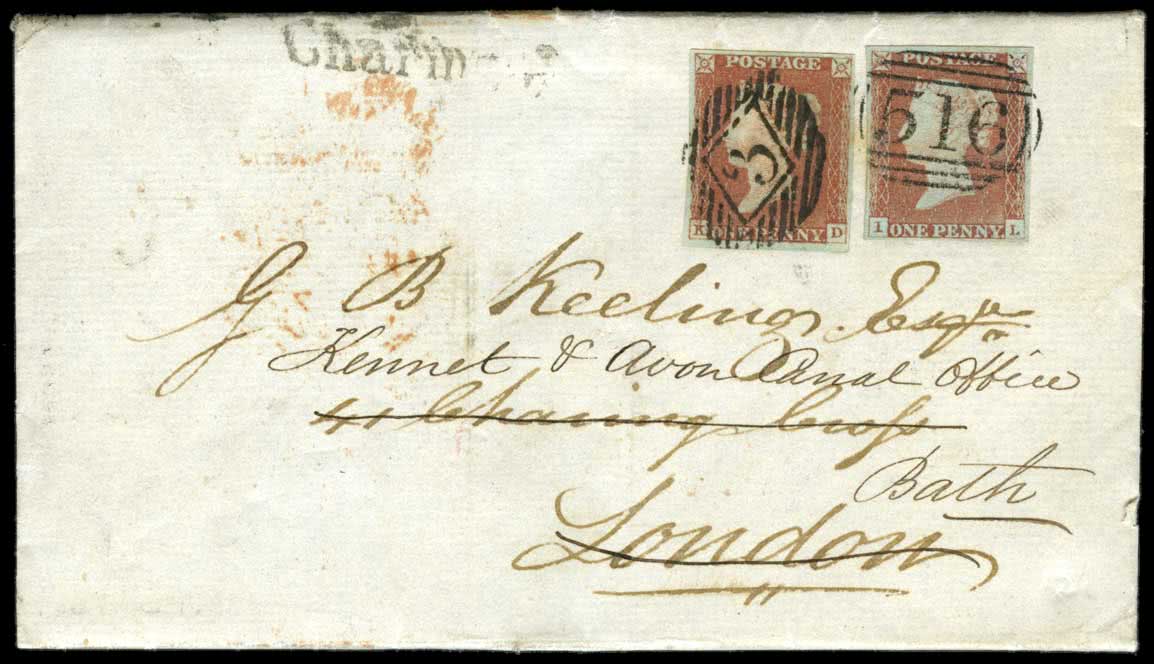 Charing
POSTAGE
3
K ONE PENNY D
POSTAGE
516
I ONE PENNY L
G B Keeling Esqre
Kennet & Avon Canal Office
41 Charing Cross
Bath
London